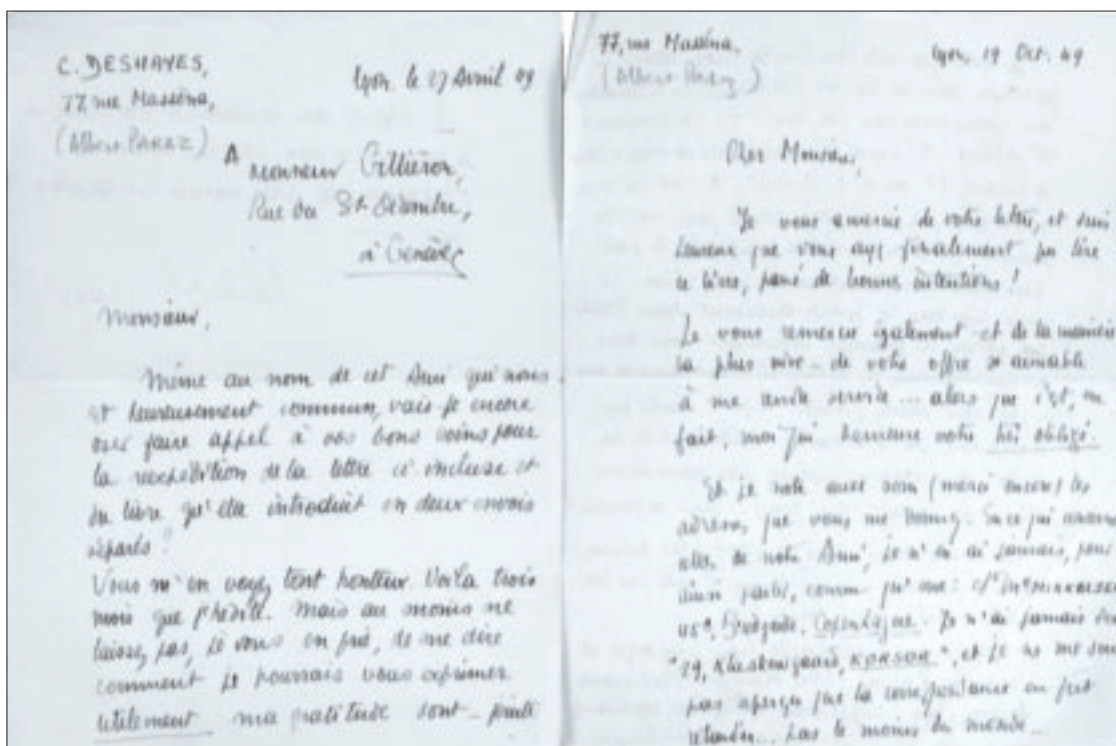 C. DESHAYES,
77 rue Masséna,
(Albert PARAZ)
Lyon le 27 Avril 49
A Monsieur Gilliéron,
Rue du
à Genève
Monsieur,
Même au nom de cet Ami qui nous
est heureusement commun, vais-je encore
oser faire appel à vos bons soins pour
la réexpédition de la lettre ci incluse et
du livre qu'elle introduit en deux envois
séparés ?
Vous m'en voyez tout honteux. Voilà trois
mois que j'hésite. Mais au moins ne
laissez pas, je vous en prie, de me dire
comment je pourrais vous exprimer
utilement ma gratitude dont
77, rue Masséna.
(Albert Paraz)
Lyon, 19 Oct. 49
Cher Monsieur,
Je vous remercie de votre lettre, et suis
heureux que vous ayez finalement pu lire
ce livre, pavé de bonnes intentions !
Je vous remercie également et de la manière
la plus vive - de votre offre si aimable
à me rendre service ... alors que c'est, en
fait, moi qui demeure votre très obligé.
Et je note avec soin (merci encore) les
adresses, que vous me donnez. En ce qui
de notre Ami, je n'ai jamais, pour
ainsi parler, connu que : c/o Me MIKKELSEN
45a, Bredgade, Copenhague. Je n'ai jamais
KORSOR", et je ne me suis
pas aperçu que la correspondance en fut
retardée... pas le moins du monde...